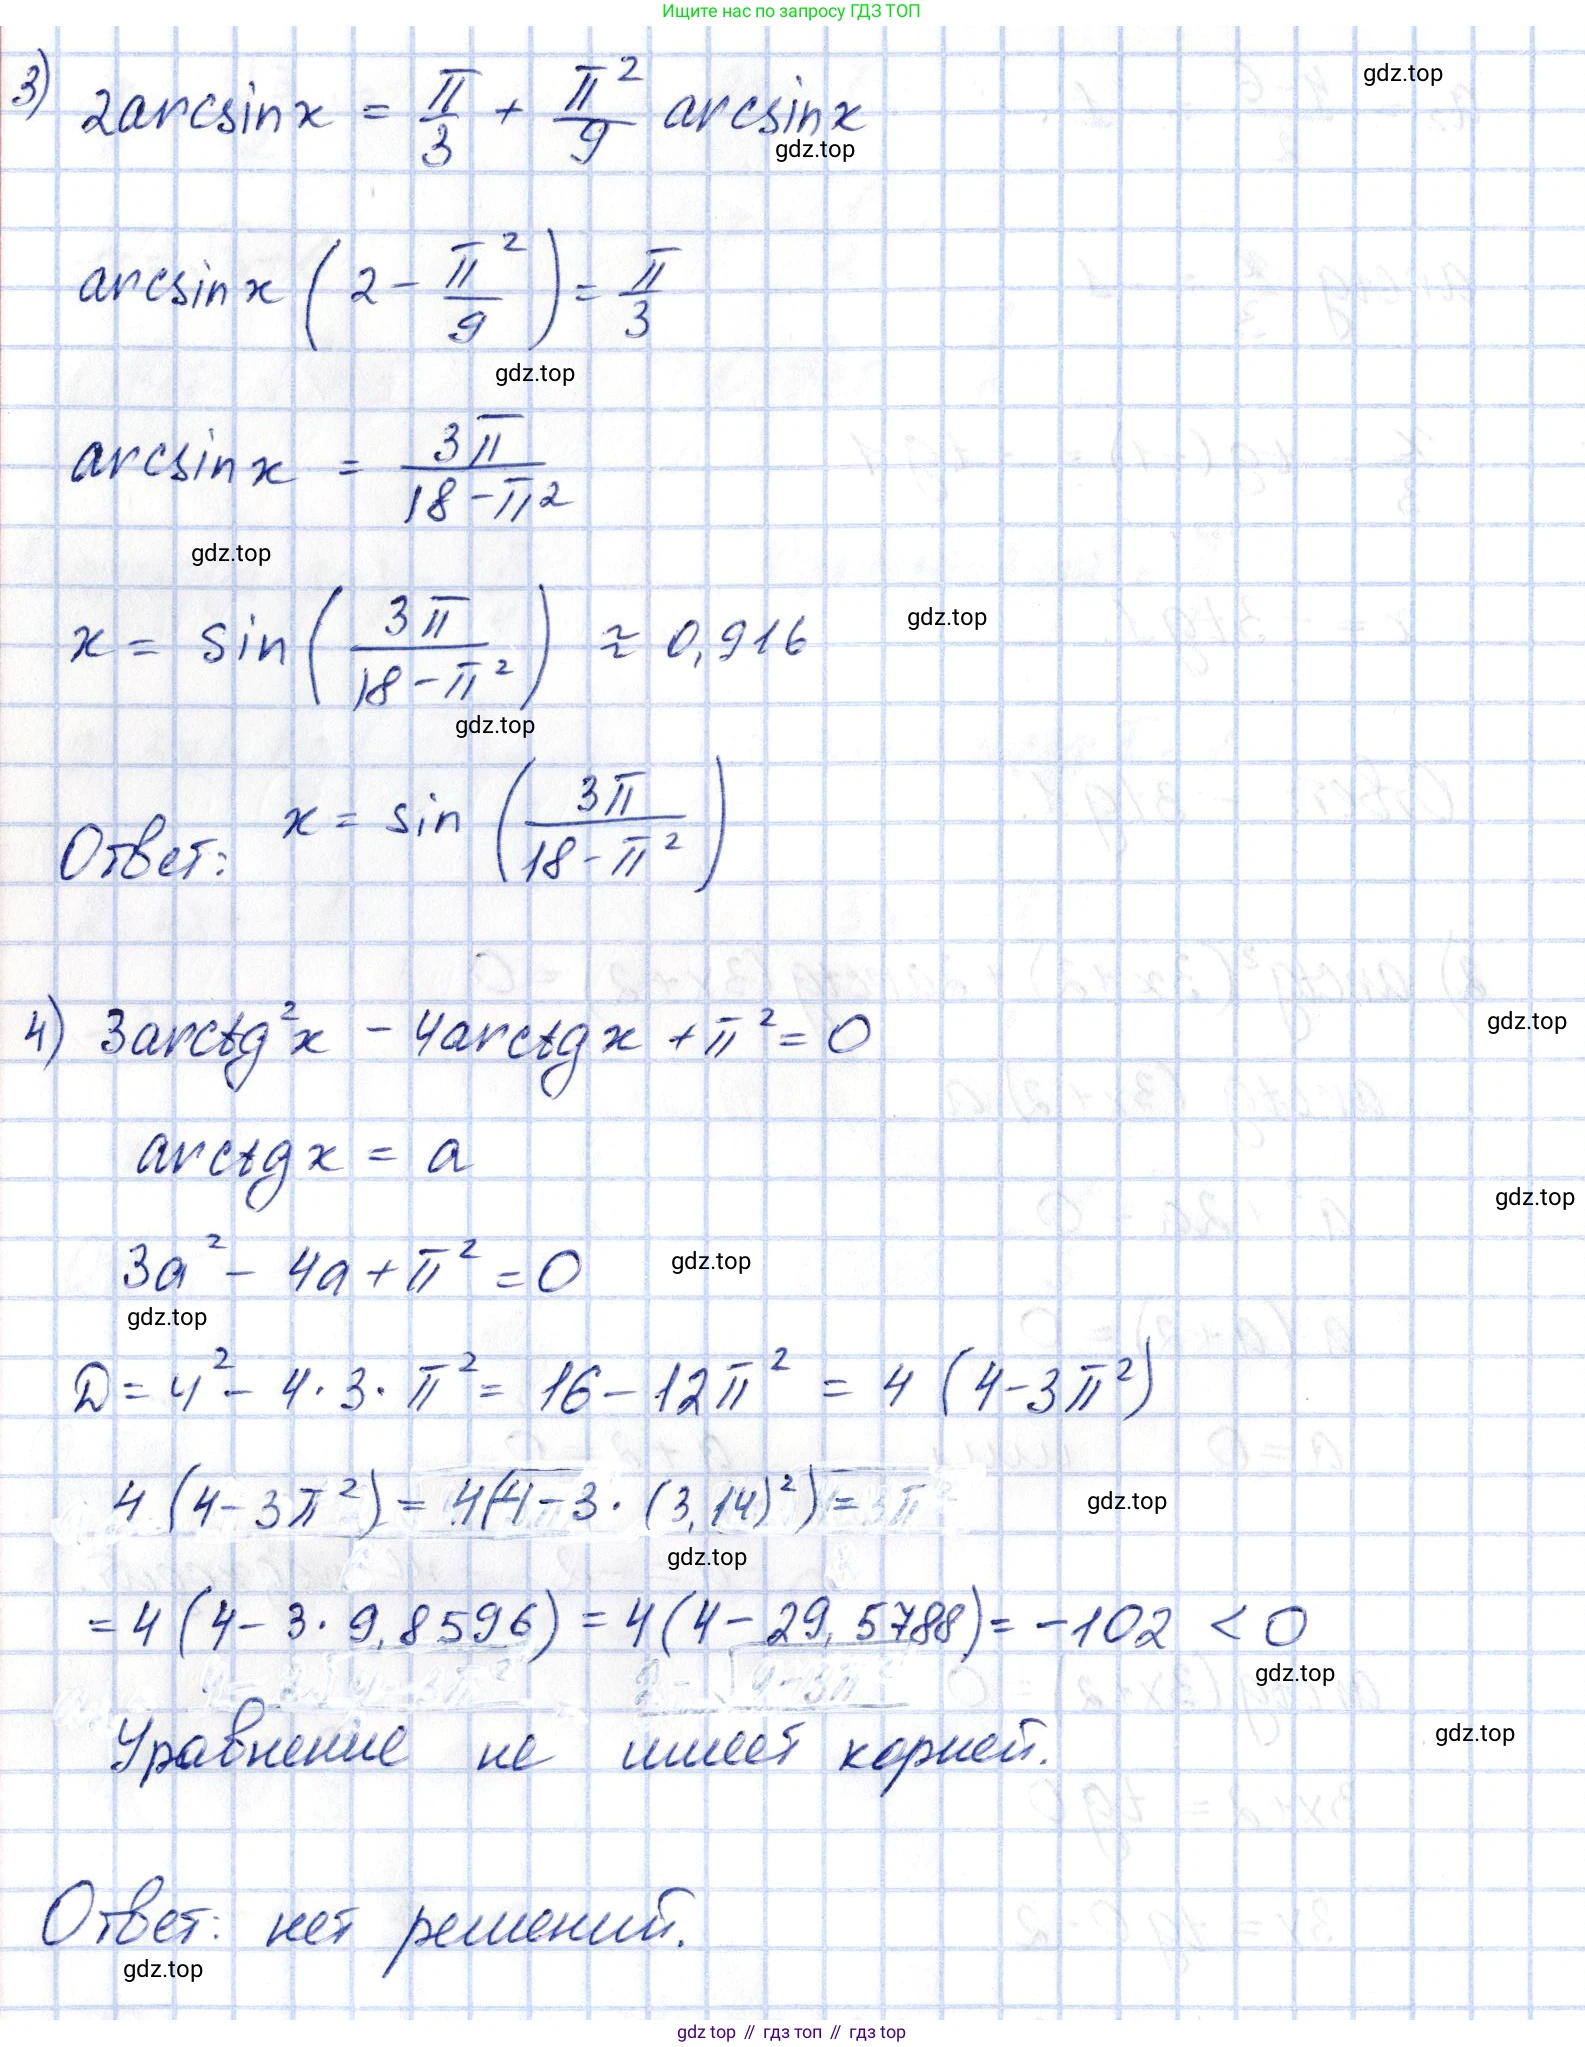 Ищите нас по запросу ГДЗ ТОП
gdz.top
3) 2arcsinx = π/3 + π²/9 arcsinx
gdz.top
arcsinx (2 - π²/9) = π/3
gdz.top
arcsinx = 3π/(18-π²)
gdz.top
x = sin(3π/(18-π²)) ≈ 0,916
gdz.top
gdz.top
Ответ: x = sin(3π/(18-π²))
4) 3arctg²x - 4arctgx + π² = 0
gdz.top
arctgx = a
gdz.top
3a² - 4a + π² = 0
gdz.top
gdz.top
D = 4² - 4·3·π² = 16 - 12π² = 4(4-3π²)
4(4-3π²) = 4(4-3·(3,14)²) =
gdz.top
gdz.top
= 4(4-3·9,8596) = 4(4-29,5788) = -102 < 0
gdz.top
Уравнение не имеет корней.
gdz.top
Ответ: нет решений.
gdz.top
gdz top // гдз топ // гдз top